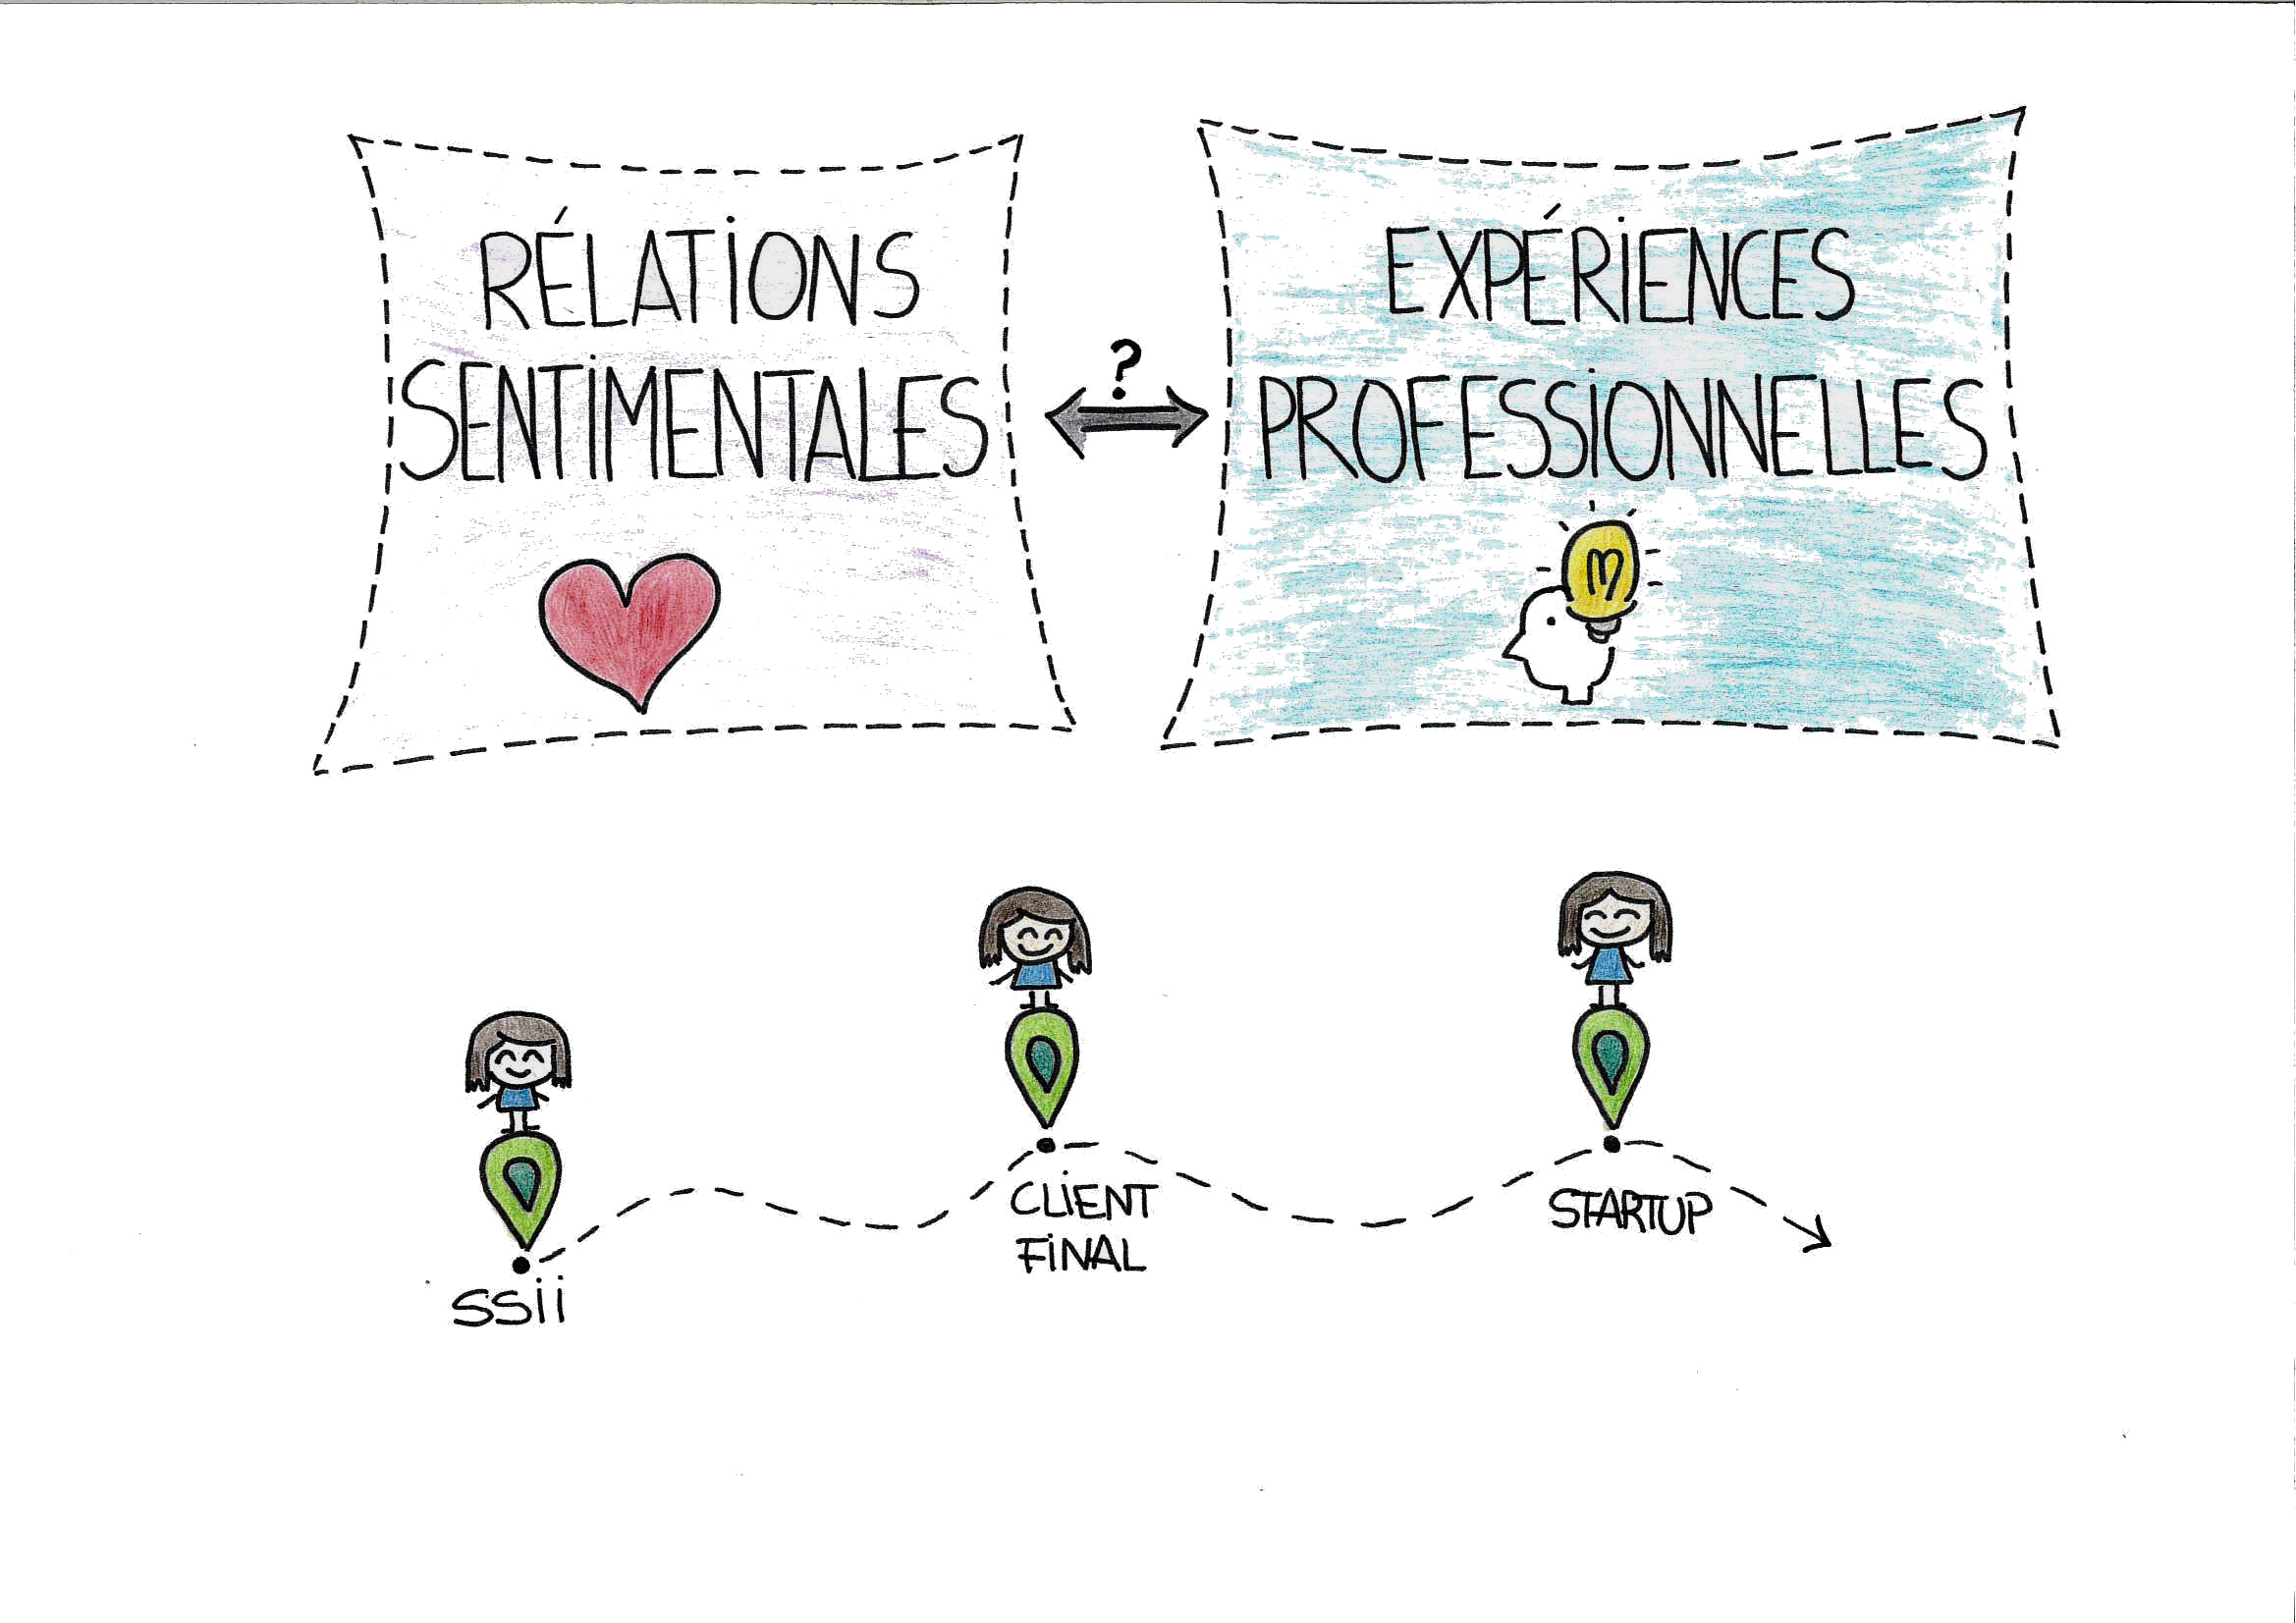 RÉLATIONS
SENTIMENTALES
?
EXPÉRIENCES
PROFESSIONNELLES
SSii
CLIENT
FINAL
STARTUP